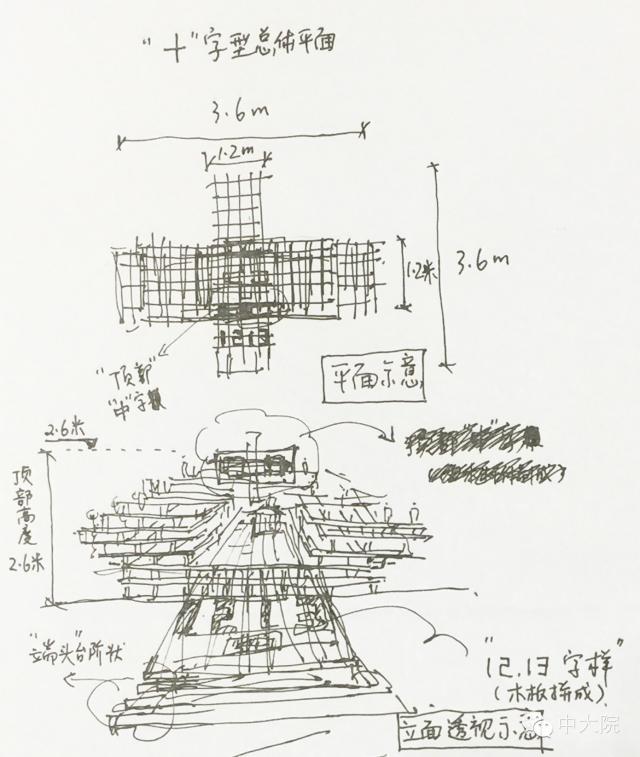 “十”字型总体平面
3.6m
1.2m
1.2米
3.6m
“顶部”
“中”字
平面示意
2.6米
顶部高度
2.6米
“端头”台阶状
“12.13字样”
(木板拼成)
立面透视示意
中大院